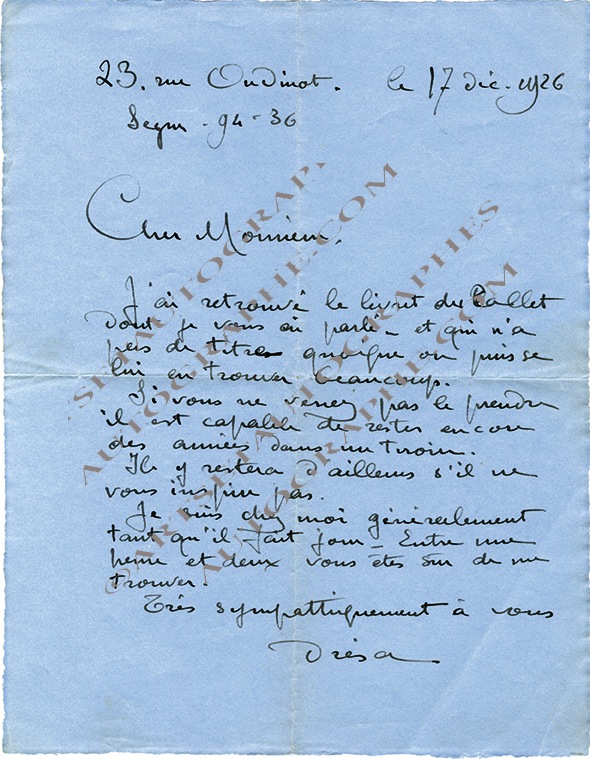 23. rue Oudinot. le 17 déc. 1926
Segur - 94 - 36
Cher Monsieur.
J'ai retrouvé le livret du Ballet
dont je vous ai parlé - et qui n'a
pas de titre quoique on puisse
lui en trouver beaucoup.
Si vous ne venez pas le prendre
il est capable de rester encore
des années dans un tiroir.
Il y restera d'ailleurs s'il ne
vous inspire pas.
Je suis chez moi généralement
tant qu'il fait jour - Entre une
heure et deux vous êtes sûr de me
trouver.
Très sympathiquement à vous
Drésa